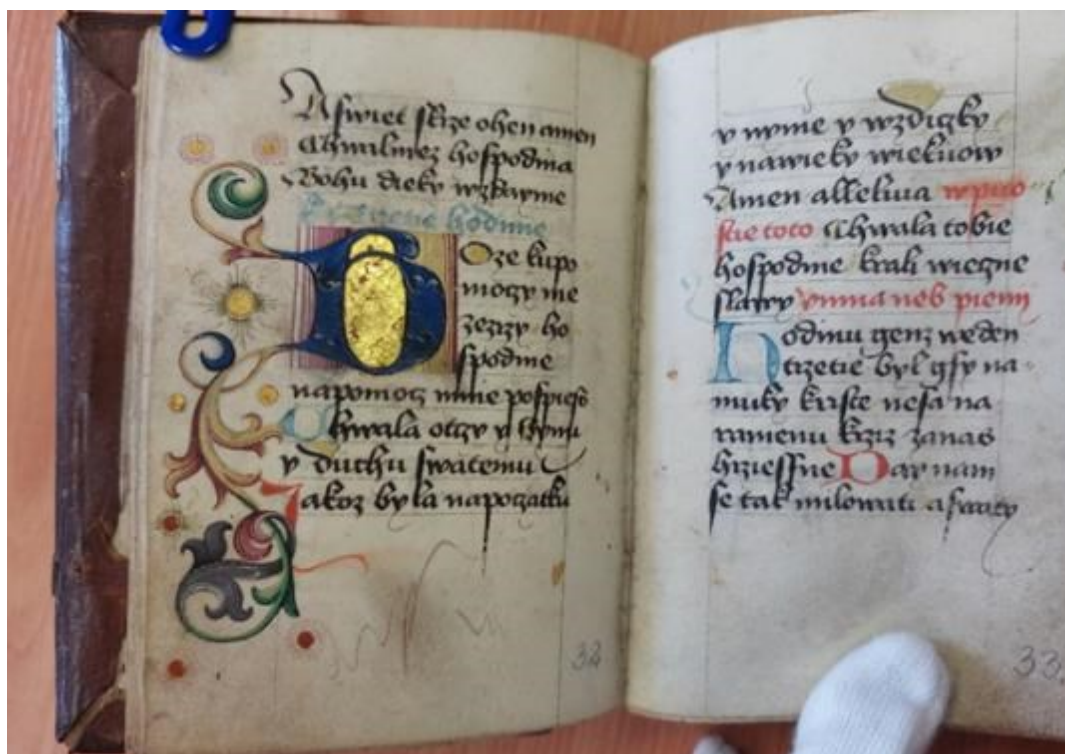 A swiet skrze ohen amen
Chwalmez hospodina
Bohu dieky wzdawme
hodinie
Boze kupo
moczy me
zezrzy ho
spodine
napomoc mnie pospiess
Chwala otczy y Synu
y Duchu swatemu
Jakoz byla napoczatku
32
y nynie y wzdiczky
y nawieky wiekuow
Amen alleluia wpuo
stie toto Chwala tobie
hospodine krali wieczne
slawy ymna neb piesn
Hodinu genz weden
trzetie byl gsy na
muky kriste nesa na
ramenu krziz zanas
hrziessne Day nam
se tak milowati aswaty
33